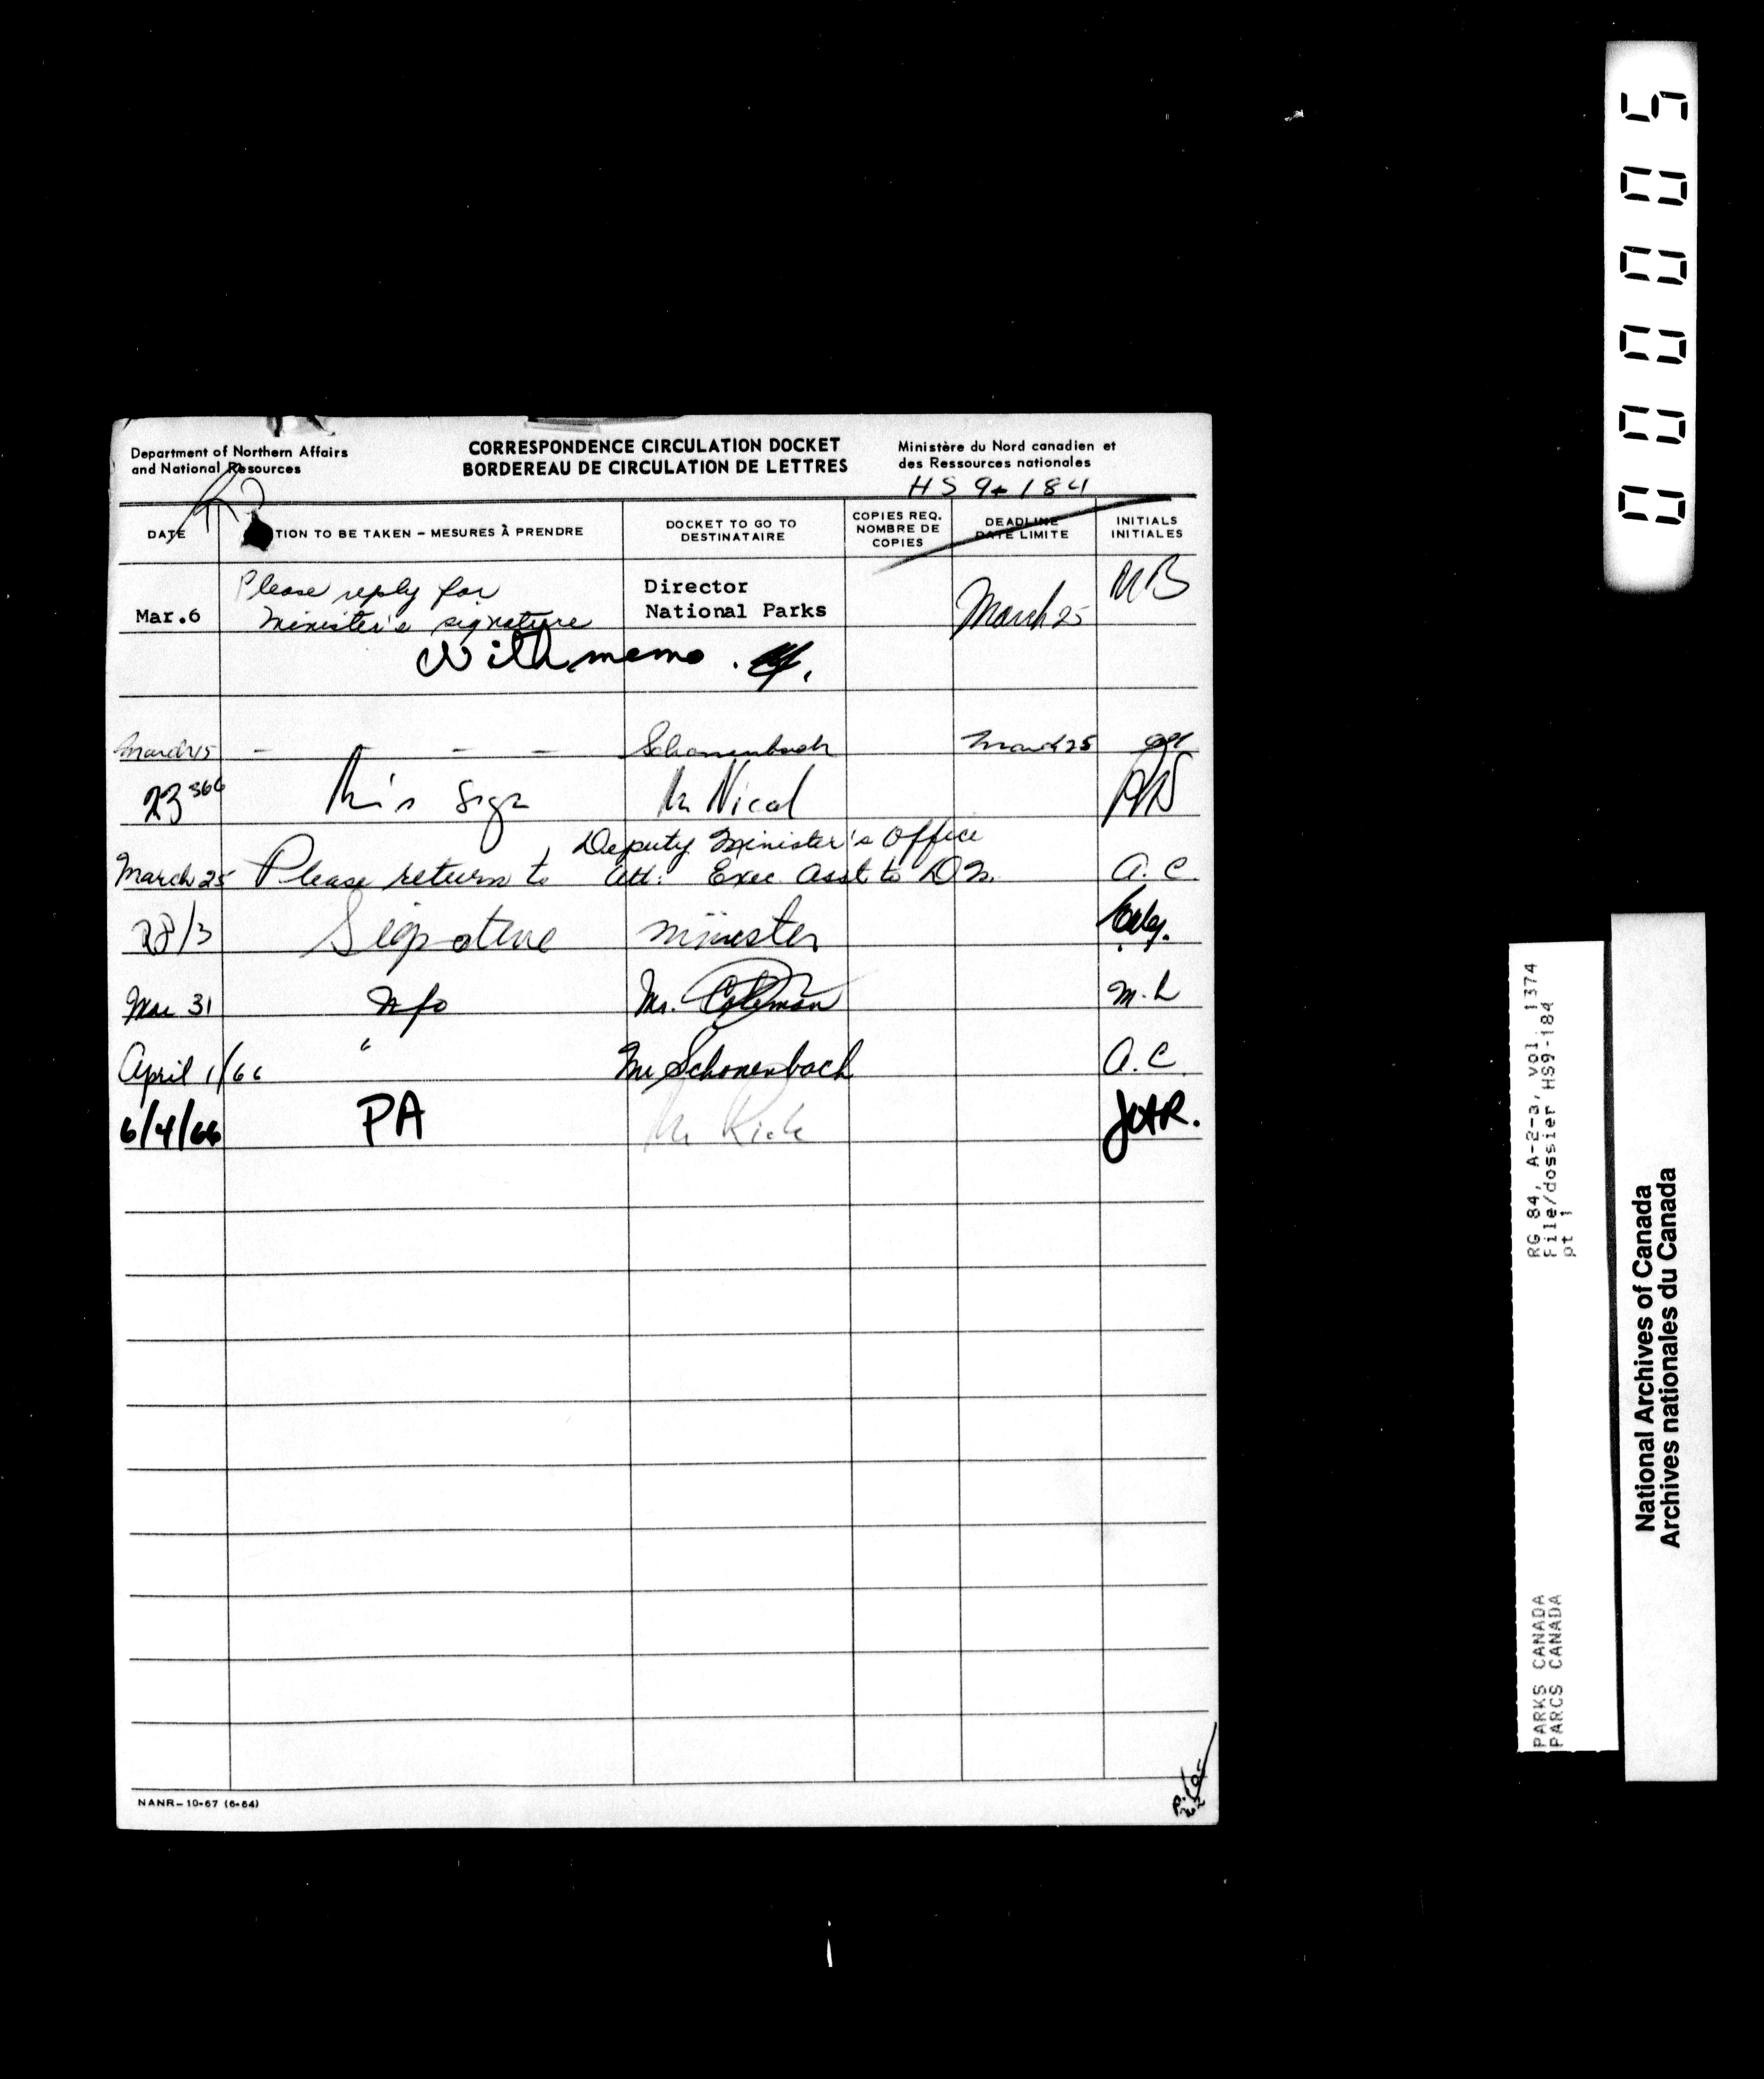 Department of Northern Affairs
and National Resources
CORRESPONDENCE CIRCULATION DOCKET
BORDEREAU DE CIRCULATION DE LETTRES
Ministère du Nord canadien et
des Ressources nationales
HS 9-184
DATE
TION TO BE TAKEN – MESURES À PRENDRE
DOCKET TO GO TO
DESTINATAIRE
COPIES REQ.
NOMBRE DE
COPIES
DEADLINE
DATE LIMITE
INITIALS
INITIALES
Mar.6
Please reply for
Minister's signature
Director
National Parks
March 25
MB
With memo.
March 15 - - - - Schonenbach March 25
23 366 Min Sign Mr Nicol
Deputy Minister's Office
March 25 Please return to Att: Exec. Asst to DM. A.C.
28/3 Signature Minister
Mar 31 Info Mr. Coleman M.L
April 1/66 " Mr Schonenbach A.C.
6/4/66 PA JAR.
NANR–10-67 (6-64)
00005
RG 84, A-2-3, vol. 1374
File/dossier HS9-184
pt 1
PARKS CANADA
PARCS CANADA
National Archives of Canada
Archives nationales du Canada